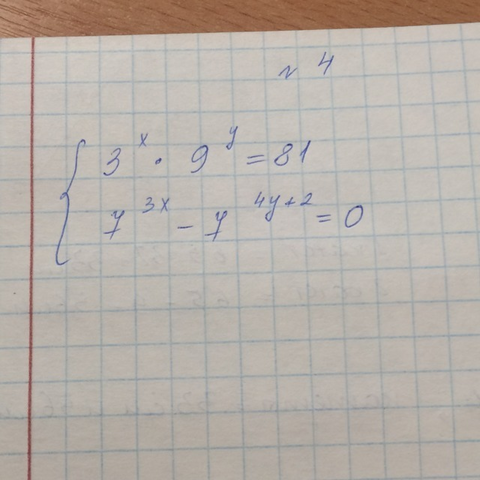 № 4
3^x · 9^y = 81
7^3x − 7^4y+2 = 0